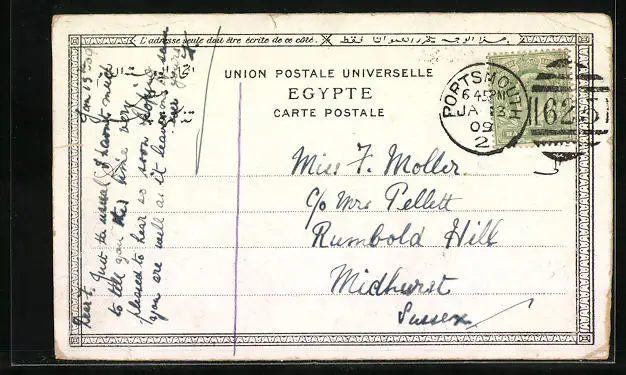 L'adresse seule doit être écrite de ce côté.
UNION POSTALE UNIVERSELLE
EGYPTE
CARTE POSTALE
PORTSMOUTH
6 45 PM
JA 13
09
2
62
Miss F. Moller.
c/o Mrs Pellett
Rumbold Hill
Midhurst
Sussex
Jan 13th 09
Dear F. Just the usual I havent much
to tell you this time very
pleased to hear so soon hoping
you are well as it leaves me same